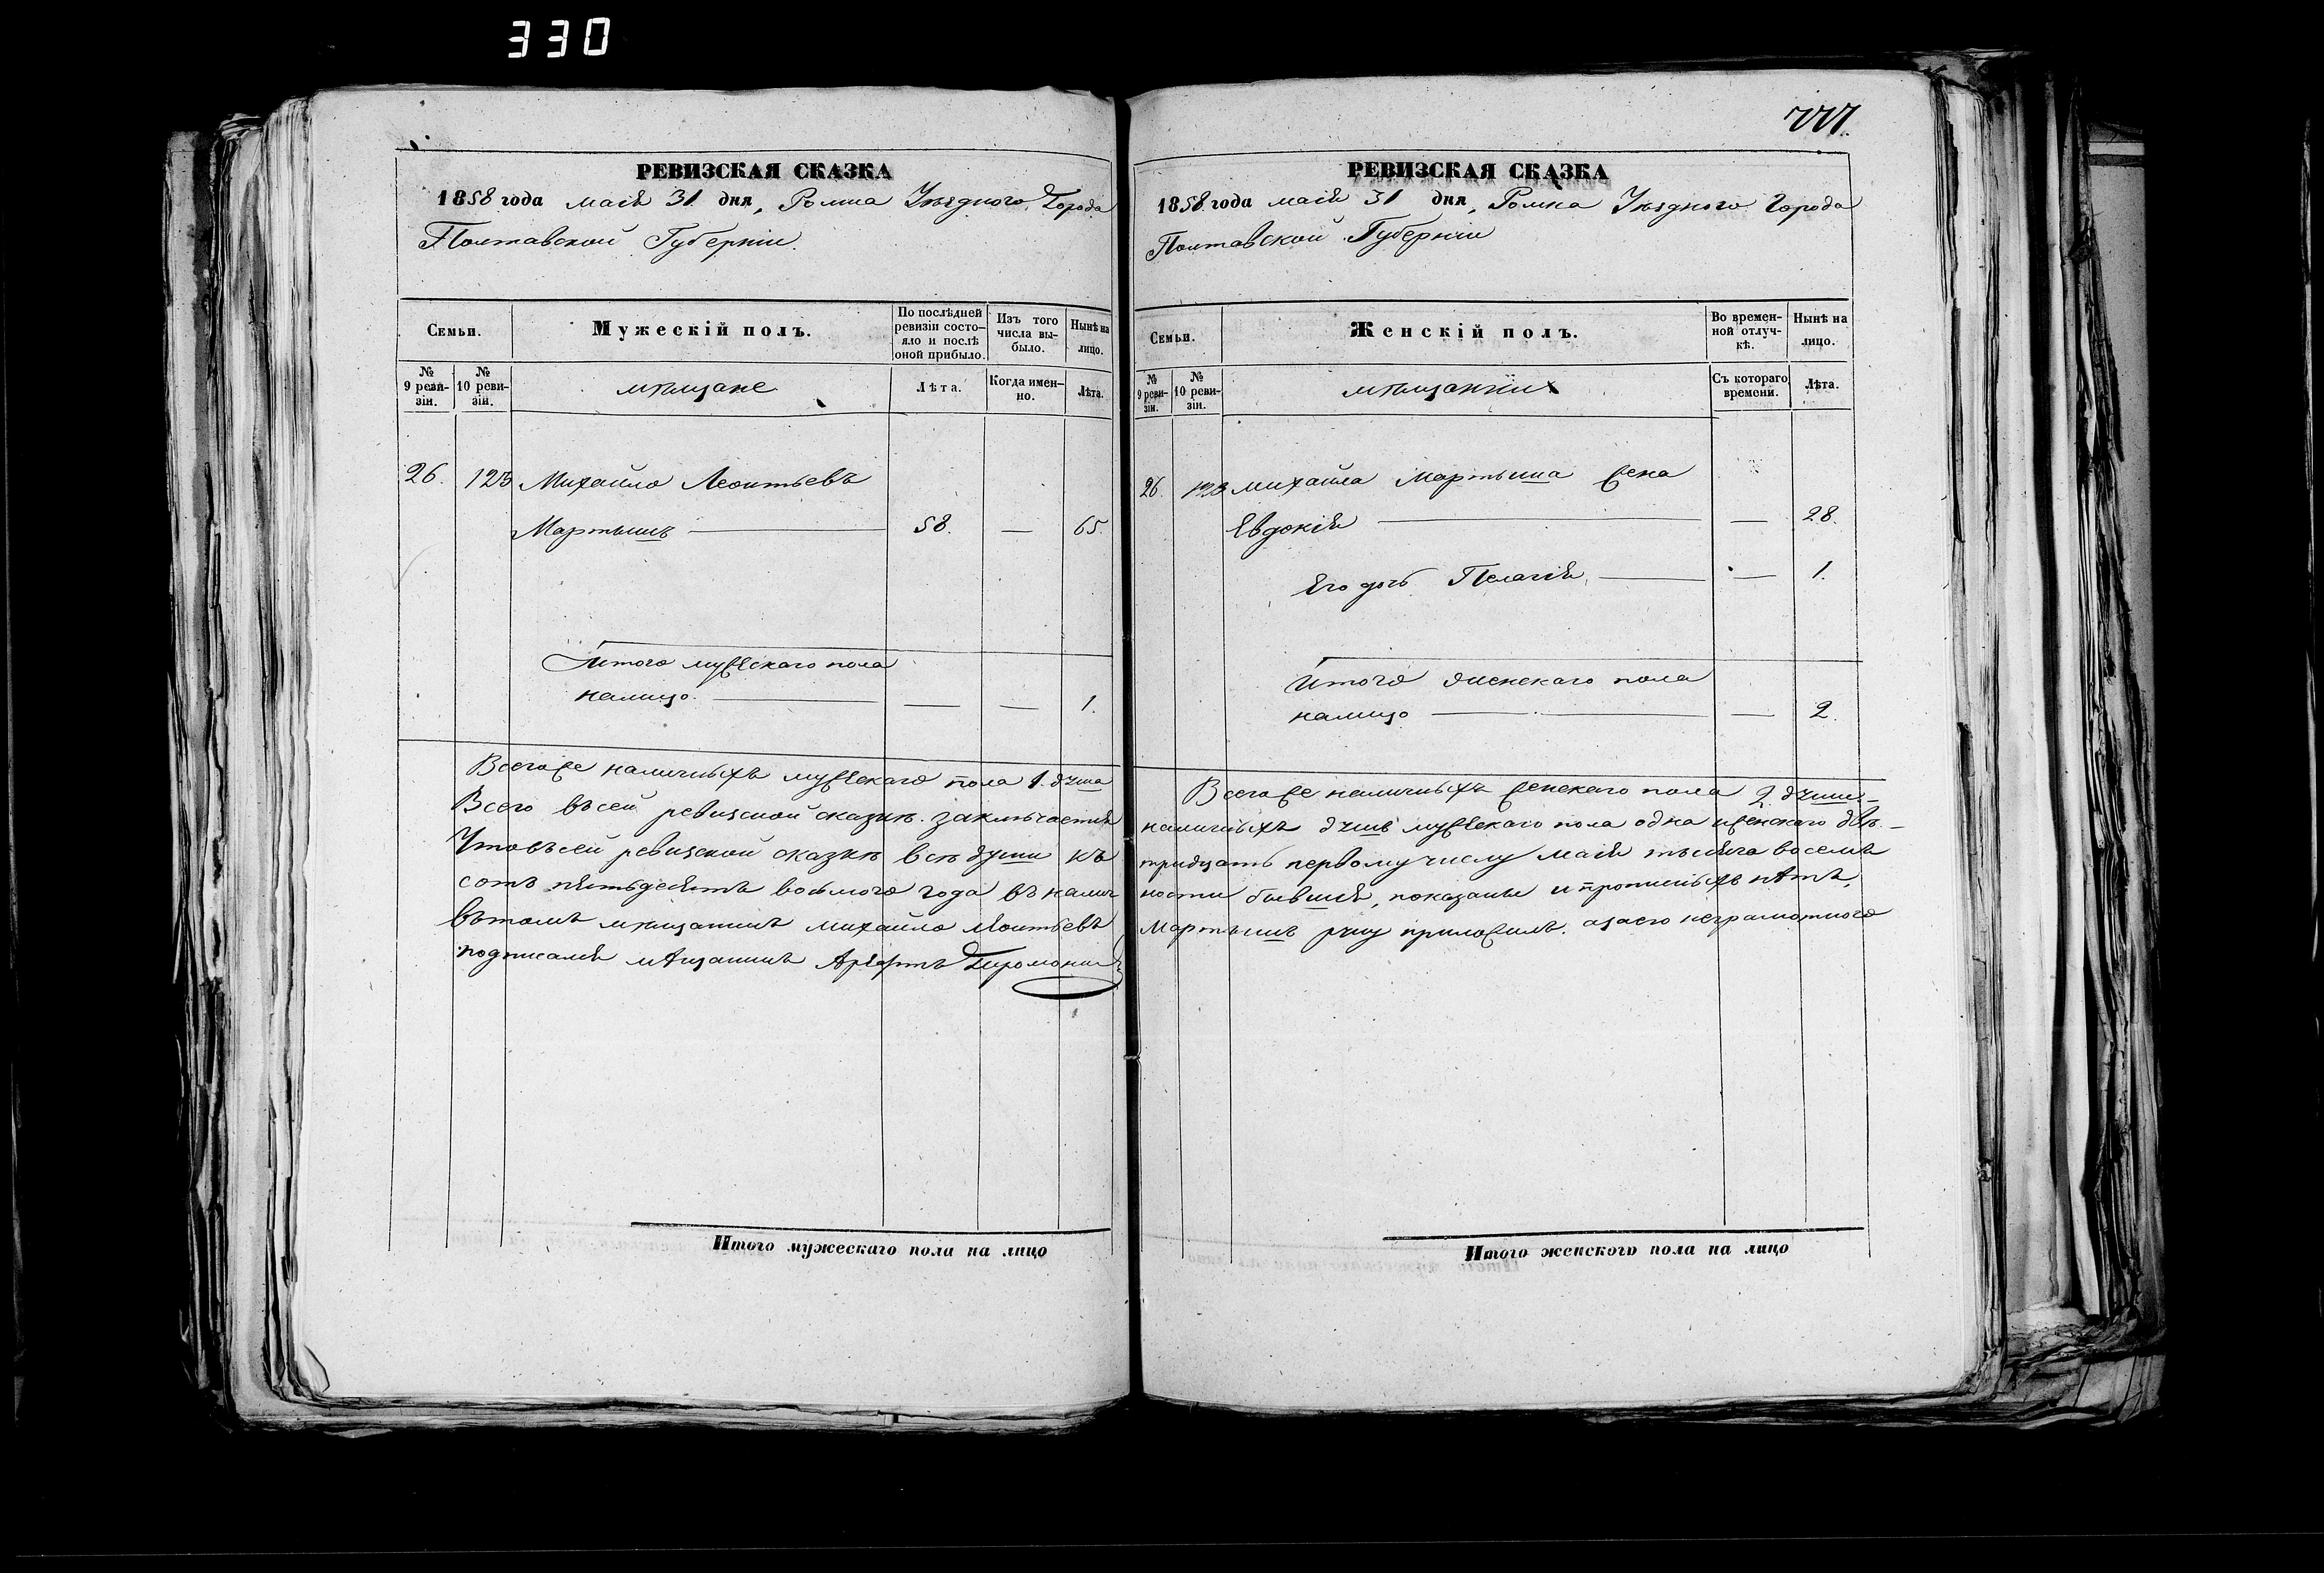 330
РЕВИЗСКАЯ СКАЗКА
1858 года мая 31 дня, Ромна Уѣзднаго Города
Полтавской Губерніи.
Семьи.
Мужескій полъ.
По послѣдней ревизіи состояло и послѣ оной прибыло.
Изъ того числа выбыло.
Нынѣ на лицо.
№ 9 ревизіи.
№ 10 ревизіи.
мѣщане
Лѣта.
Когда именно.
Лѣта.
26. 123 Михайло Леонтьевъ
Мартышъ — 58. — 65.
Итого мужескаго пола
налицо — — — 1.
Всегоже наличныхъ мужескаго пола 1. душа
Всего въсей ревизской сказкѣ заключается
Чтовъсей ревизской сказкѣ всѣ души къ
сотъ пятьдесятъ восьмого года въ налич
вътомъ мѣщанинъ Михайло Леонтьевъ
подписался мѣщанинъ
Итого мужескаго пола на лицо
РЕВИЗСКАЯ СКАЗКА
1858 года мая 31 дня, Ромна Уѣзднаго Города
Полтавской Губерніи
Семьи.
Женскій полъ.
Во временной отлучкѣ.
Нынѣ на лицо.
№ 9 ревизіи.
№ 10 ревизіи.
мѣщанки
Съ котораго времени.
Лѣта.
26. 123 Михайла Мартыша жена
Евдокія — — 28.
Его дочь Пелагія — — 1.
Итого женскаго пола
налицо — — 2.
Всегоже наличныхъ женскаго пола 2. души.
наличныхъ душъ мужескаго пола одна иженскаго двѣ.
тридцать первому числу мая тысяча восемь
ности бывшія, показаны ипрописныхъ нѣтъ,
Мартышъ руку приложилъ. азаего неграмотного
Итого женского пола на лицо